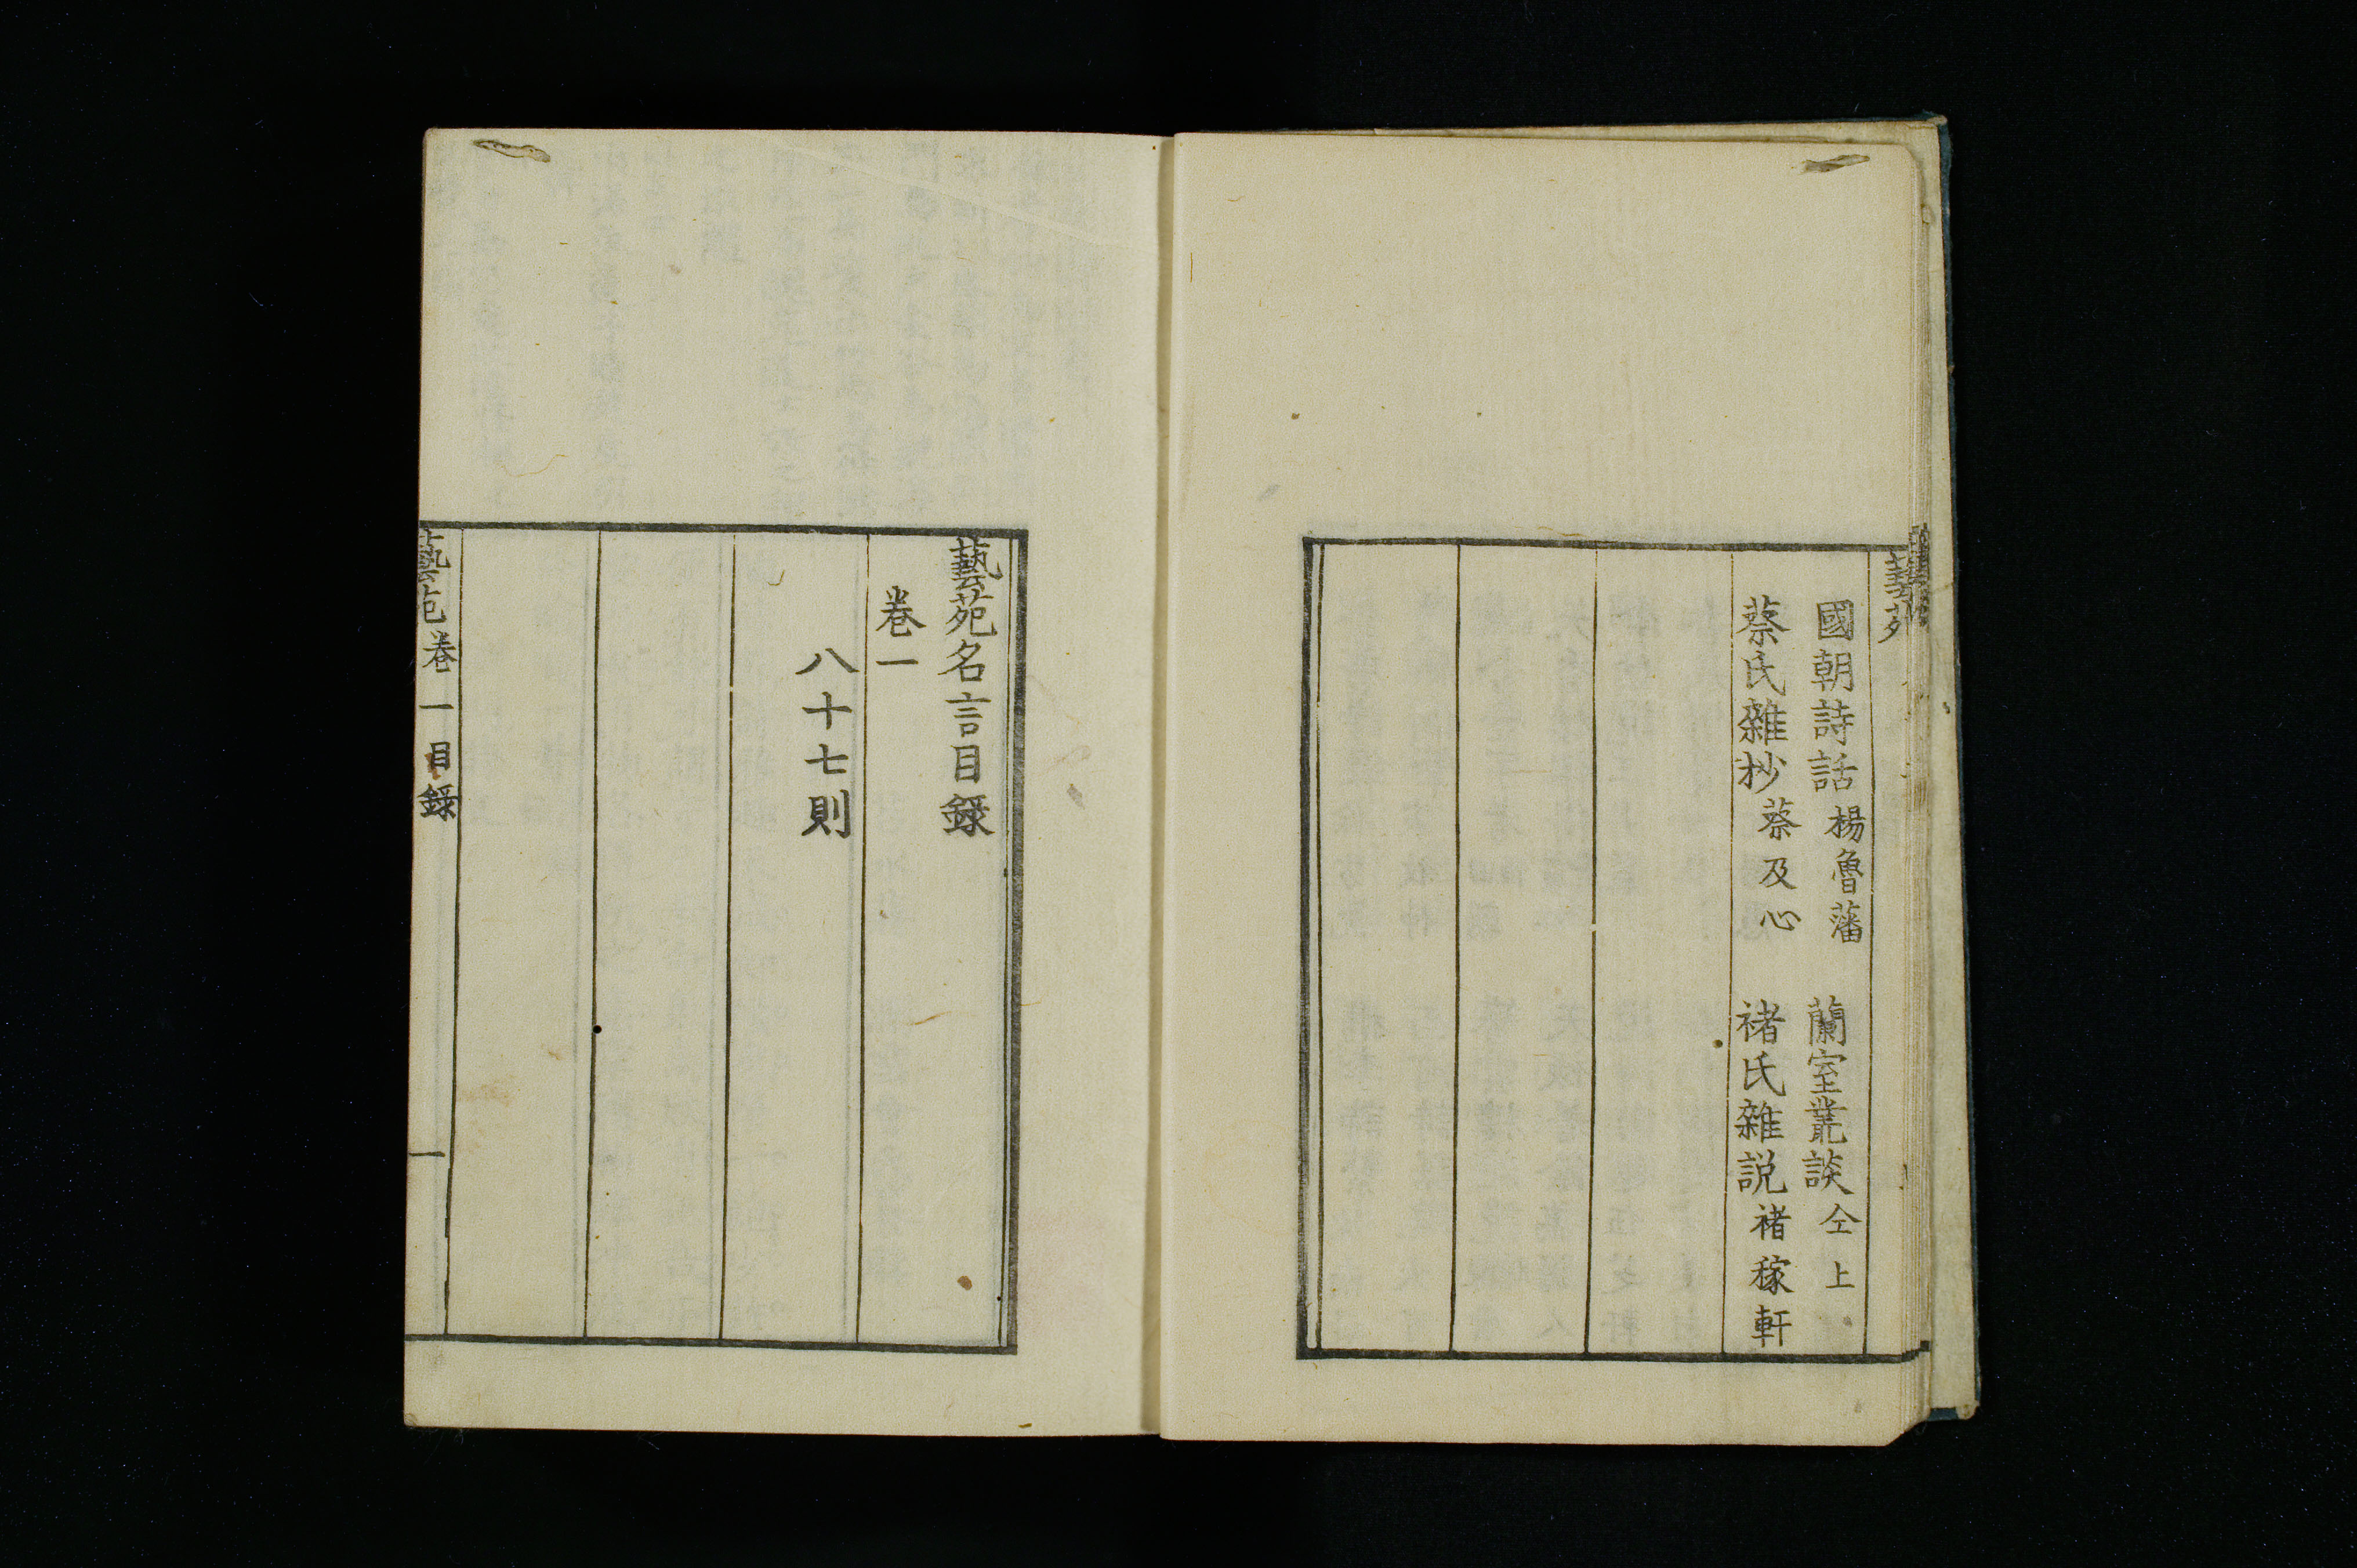 藝苑
國朝詩話 楊魯藩 蘭室叢談 仝上
蔡氏雜抄 蔡及心 褚氏雜說 褚稼軒
藝苑名言目錄
卷一
八十七則
藝苑 卷一目錄 一